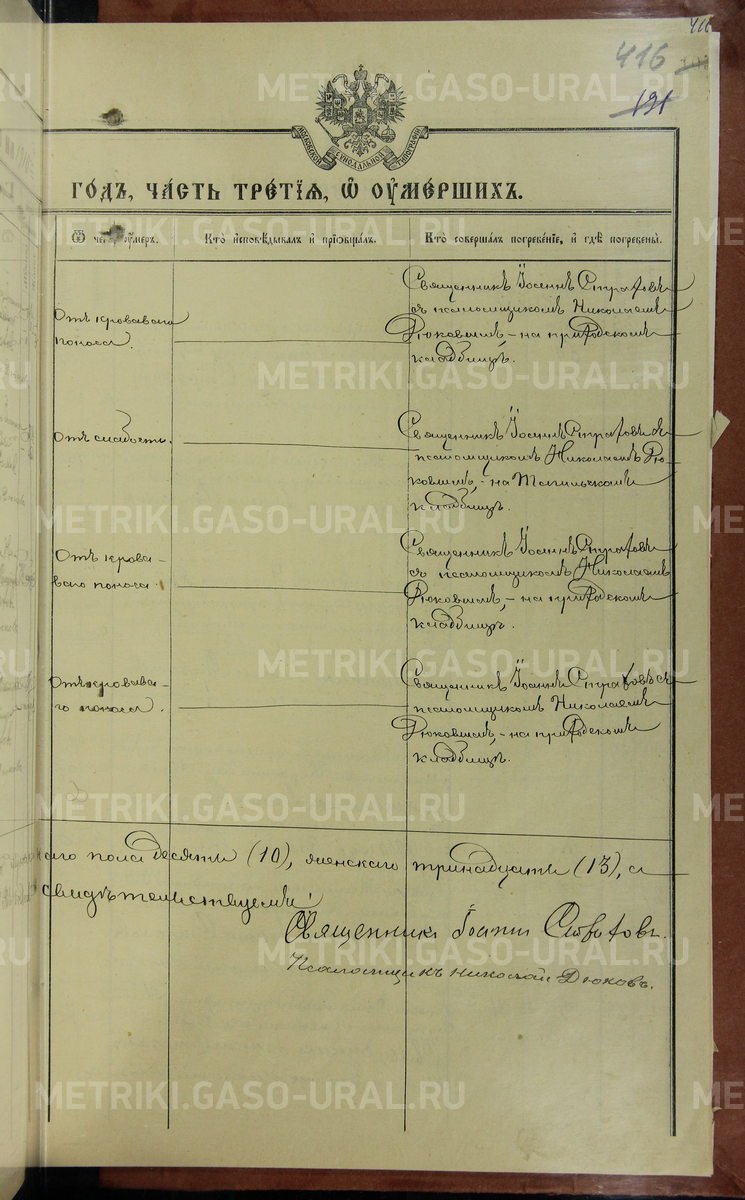 416
416
191
МОСКОВСКОЙ СѴНОДАЛЬНОЙ ТИПОГРАФІИ
ГОДЪ, ЧАСТЬ ТРЕТІЯ, Ѿ ОУМЕРШИХЪ.
Ѿ чегѡ оумеръ.
Кто исповѣдывалъ и пріобщалъ.
Кто совершалъ погребеніе, и гдѣ погребены.
Отъ кроваваго
поноса.
Священникъ Іоаннъ
съ псаломщикомъ Николаемъ
Дюковымъ, – на приходскомъ
кладбищѣ.
Отъ слабости.
Священникъ Іоаннъ съ
псаломщикомъ Николаемъ Дю-
ковымъ, – на
кладбищѣ.
Отъ крова-
ваго поноса.
Священникъ Іоаннъ
съ псаломщикомъ Николаемъ
Дюковымъ, – на приходскомъ
кладбищѣ.
Отъ кровава-
го поноса.
Священникъ Іоаннъ съ
псаломщикомъ Николаемъ
Дюковымъ, – на приходскомъ
кладбищѣ.
пола десять (10), женскаго тринадцать (13), а
свидѣтельствуемъ:
Священникъ Іоаннъ
Псаломщикъ Николай Дюковъ.
METRIKI.GASO-URAL.RU